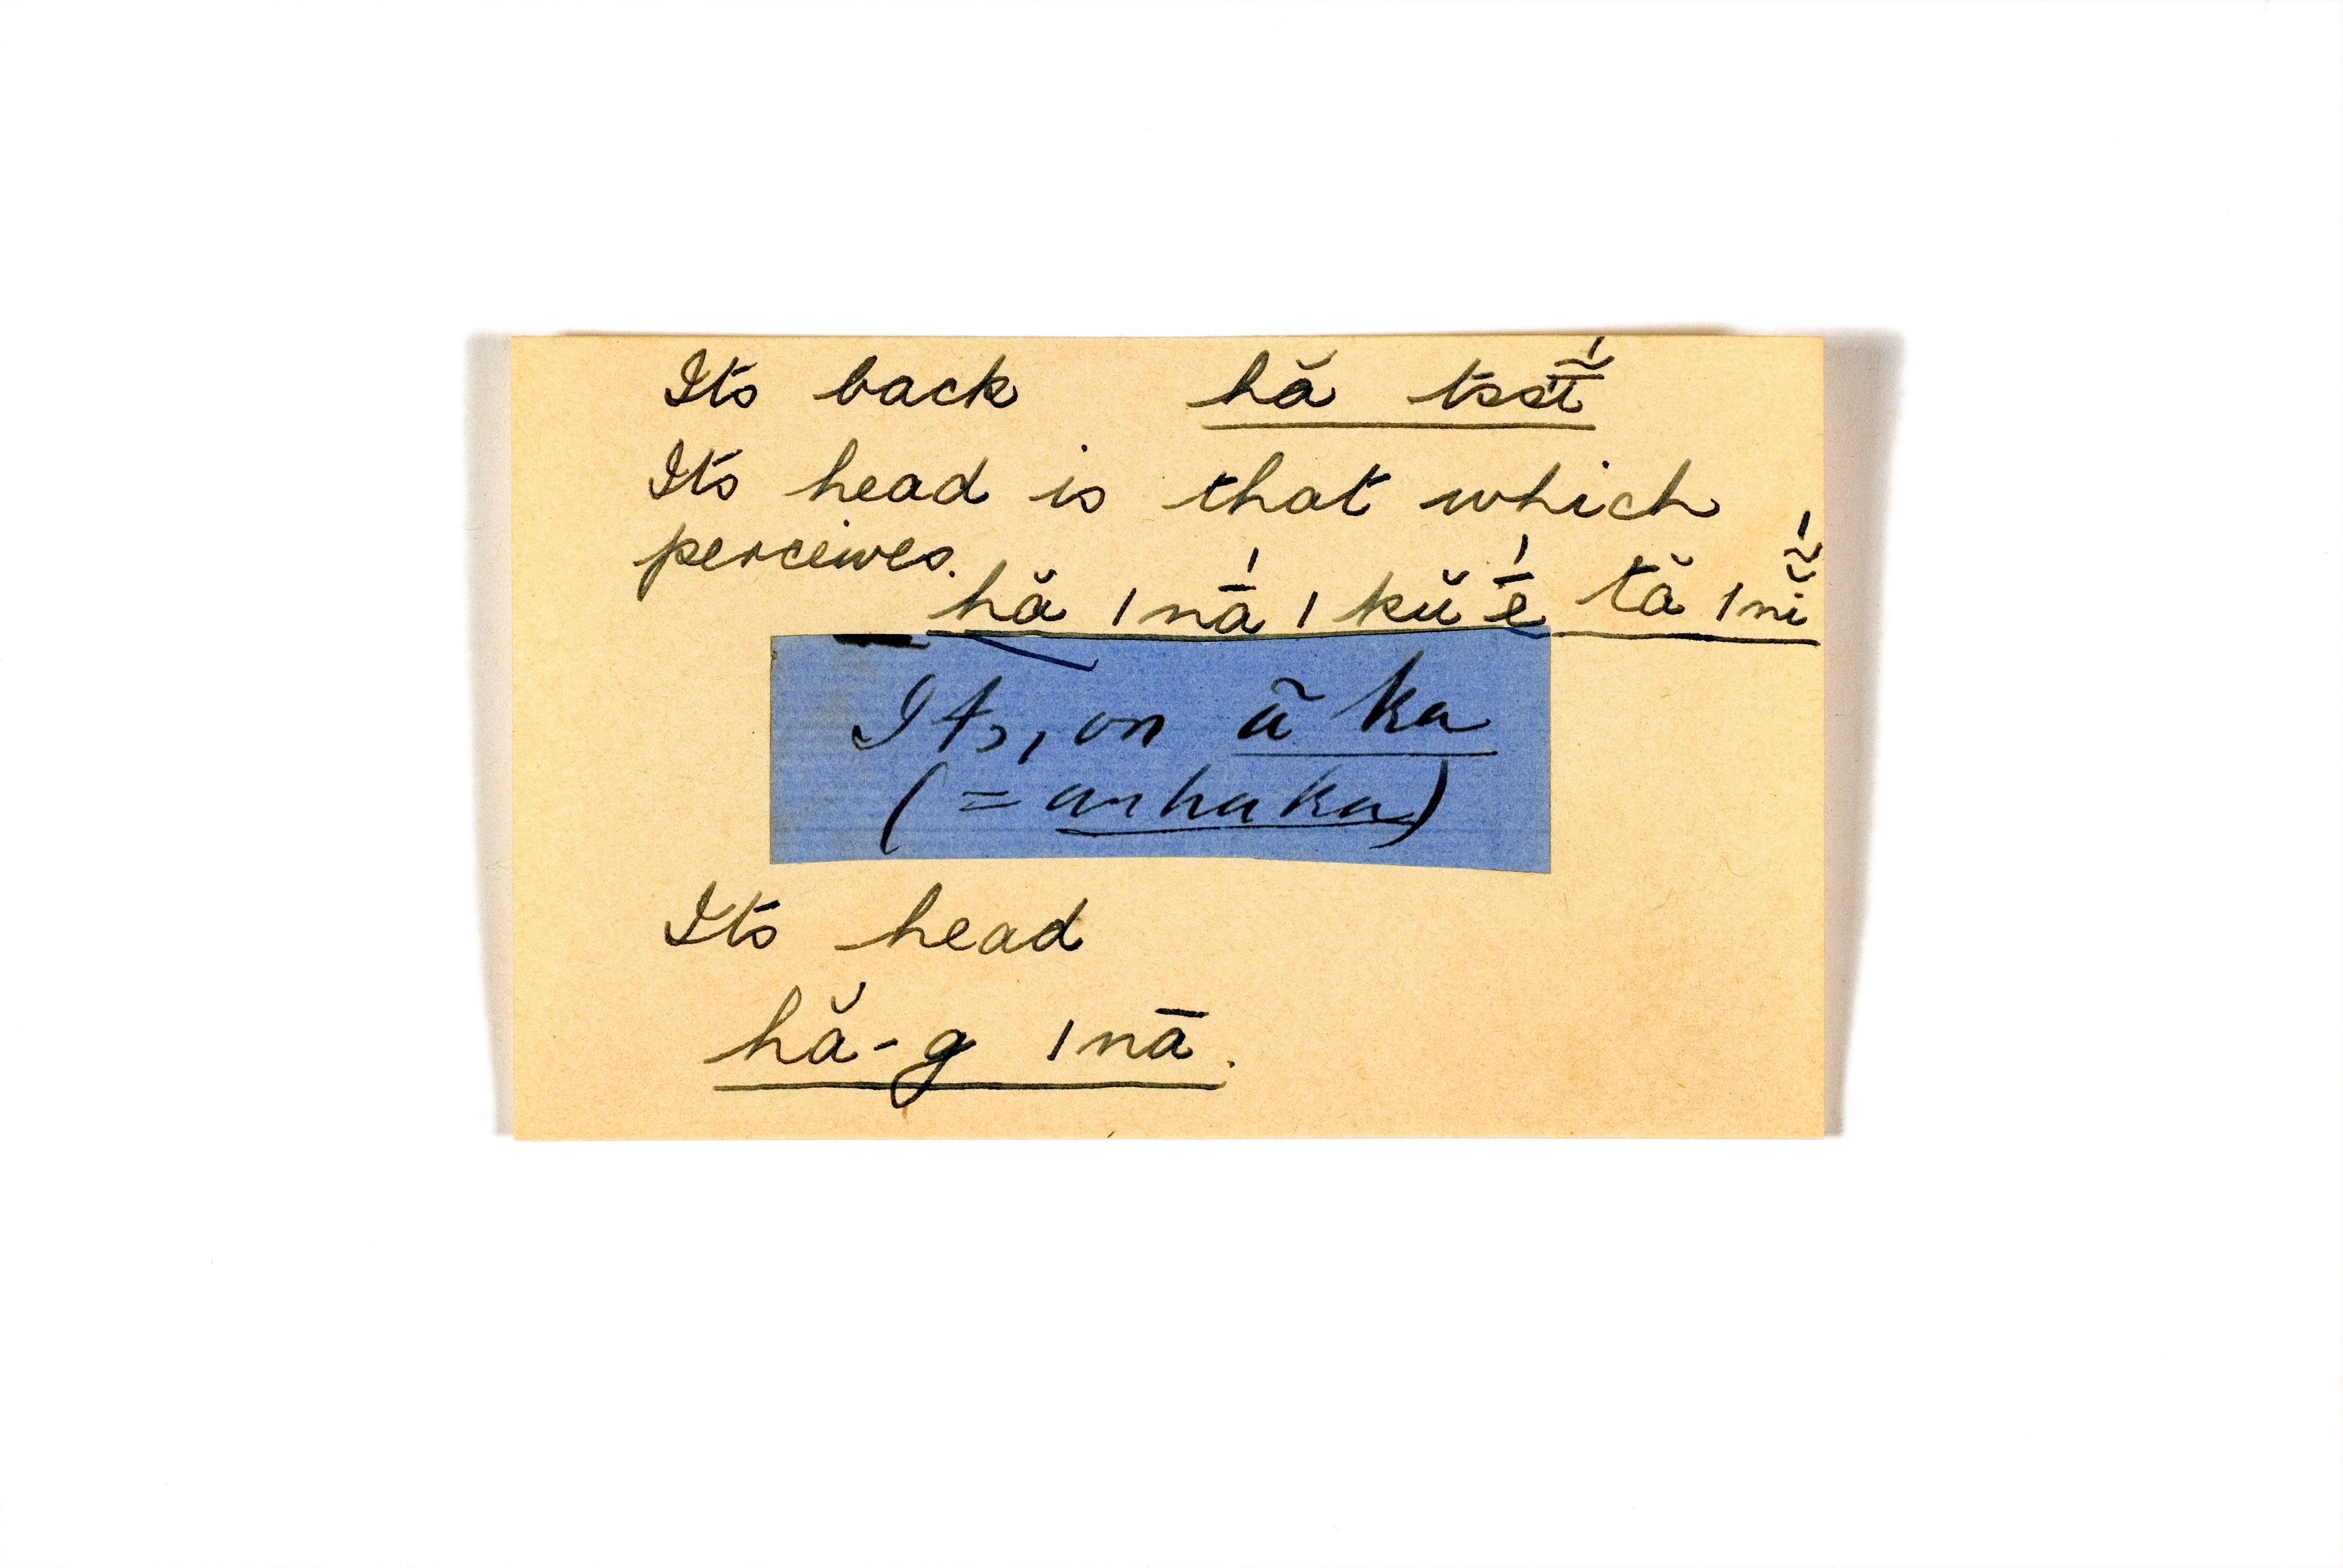 Its back hă tssī̆́
Its head is that which
perceives.
hă |nā́ |kŭ ḗ tă |nĭ̃́
Its, on ã ka
(= au ha ka)
Its head
hă-g |nā.